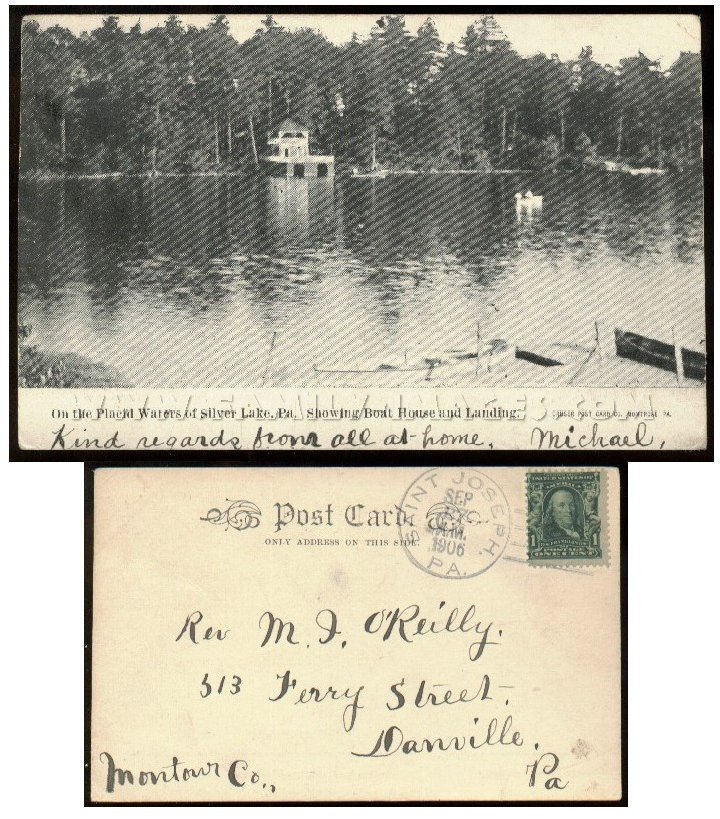 WWW.FAMILYIMAGES.COM
On the Placid Waters of Silver Lake, Pa. Showing Boat House and Landing.
CRUSER POST CARD CO. MONTROSE PA.
Kind regards from all at home, Michael,
Post Card.
ONLY ADDRESS ON THIS SIDE.
SAINT JOSEPH
SEP
27
A.M.
1906
PA.
UNITED STATES OF AMERICA
1 1
POSTAGE
ONE CENT
Rev M. J. O'Reilly.
513 Ferry Street.
Danville.
Montour Co., Pa